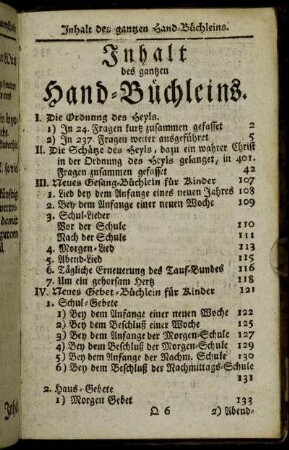 Inhalt des gantzen Hand-Büchleins.
Inhalt
des gantzen
Hand-Büchleins.
I. Die Ordnung des Heyls.
1) In 24. Fragen kurtz zusammen gefasset 2
2) In 237. Fragen weiter ausgeführet 5
II. Die Schätze des Heyls, dazu ein wahrer Christ
in der Ordnung des Heyls gelanget, in 401.
Fragen zusammen gefasset 42
III. Neues Gesang-Büchlein für Kinder 107
1. Lied bey dem Anfange eines neuen Jahres 108
2. Bey dem Anfange einer neuen Woche 109
3. Schul-Lieder
Vor der Schule 110
Nach der Schule 111
4. Morgen-Lied 113
5. Abend-Lied 115
6. Tägliche Erneuerung des Tauf-Bundes 116
7. Um ein gehorsam Hertz 118
IV. Neues Gebet-Büchlein für Kinder 121
1. Schul-Gebete
1) Bey dem Anfange einer neuen Woche 122
2) Bey dem Beschluß einer Woche 125
3) Bey dem Anfange der Morgen-Schule 127
4) Bey dem Beschluß der Morgen-Schule 129
5) Bey dem Anfange der Nachm. Schule 130
6) Bey dem Beschluß der Nachmittags-Schule
131
2. Haus-Gebete
1) Morgen Gebet 133
O 6 2) Abend-